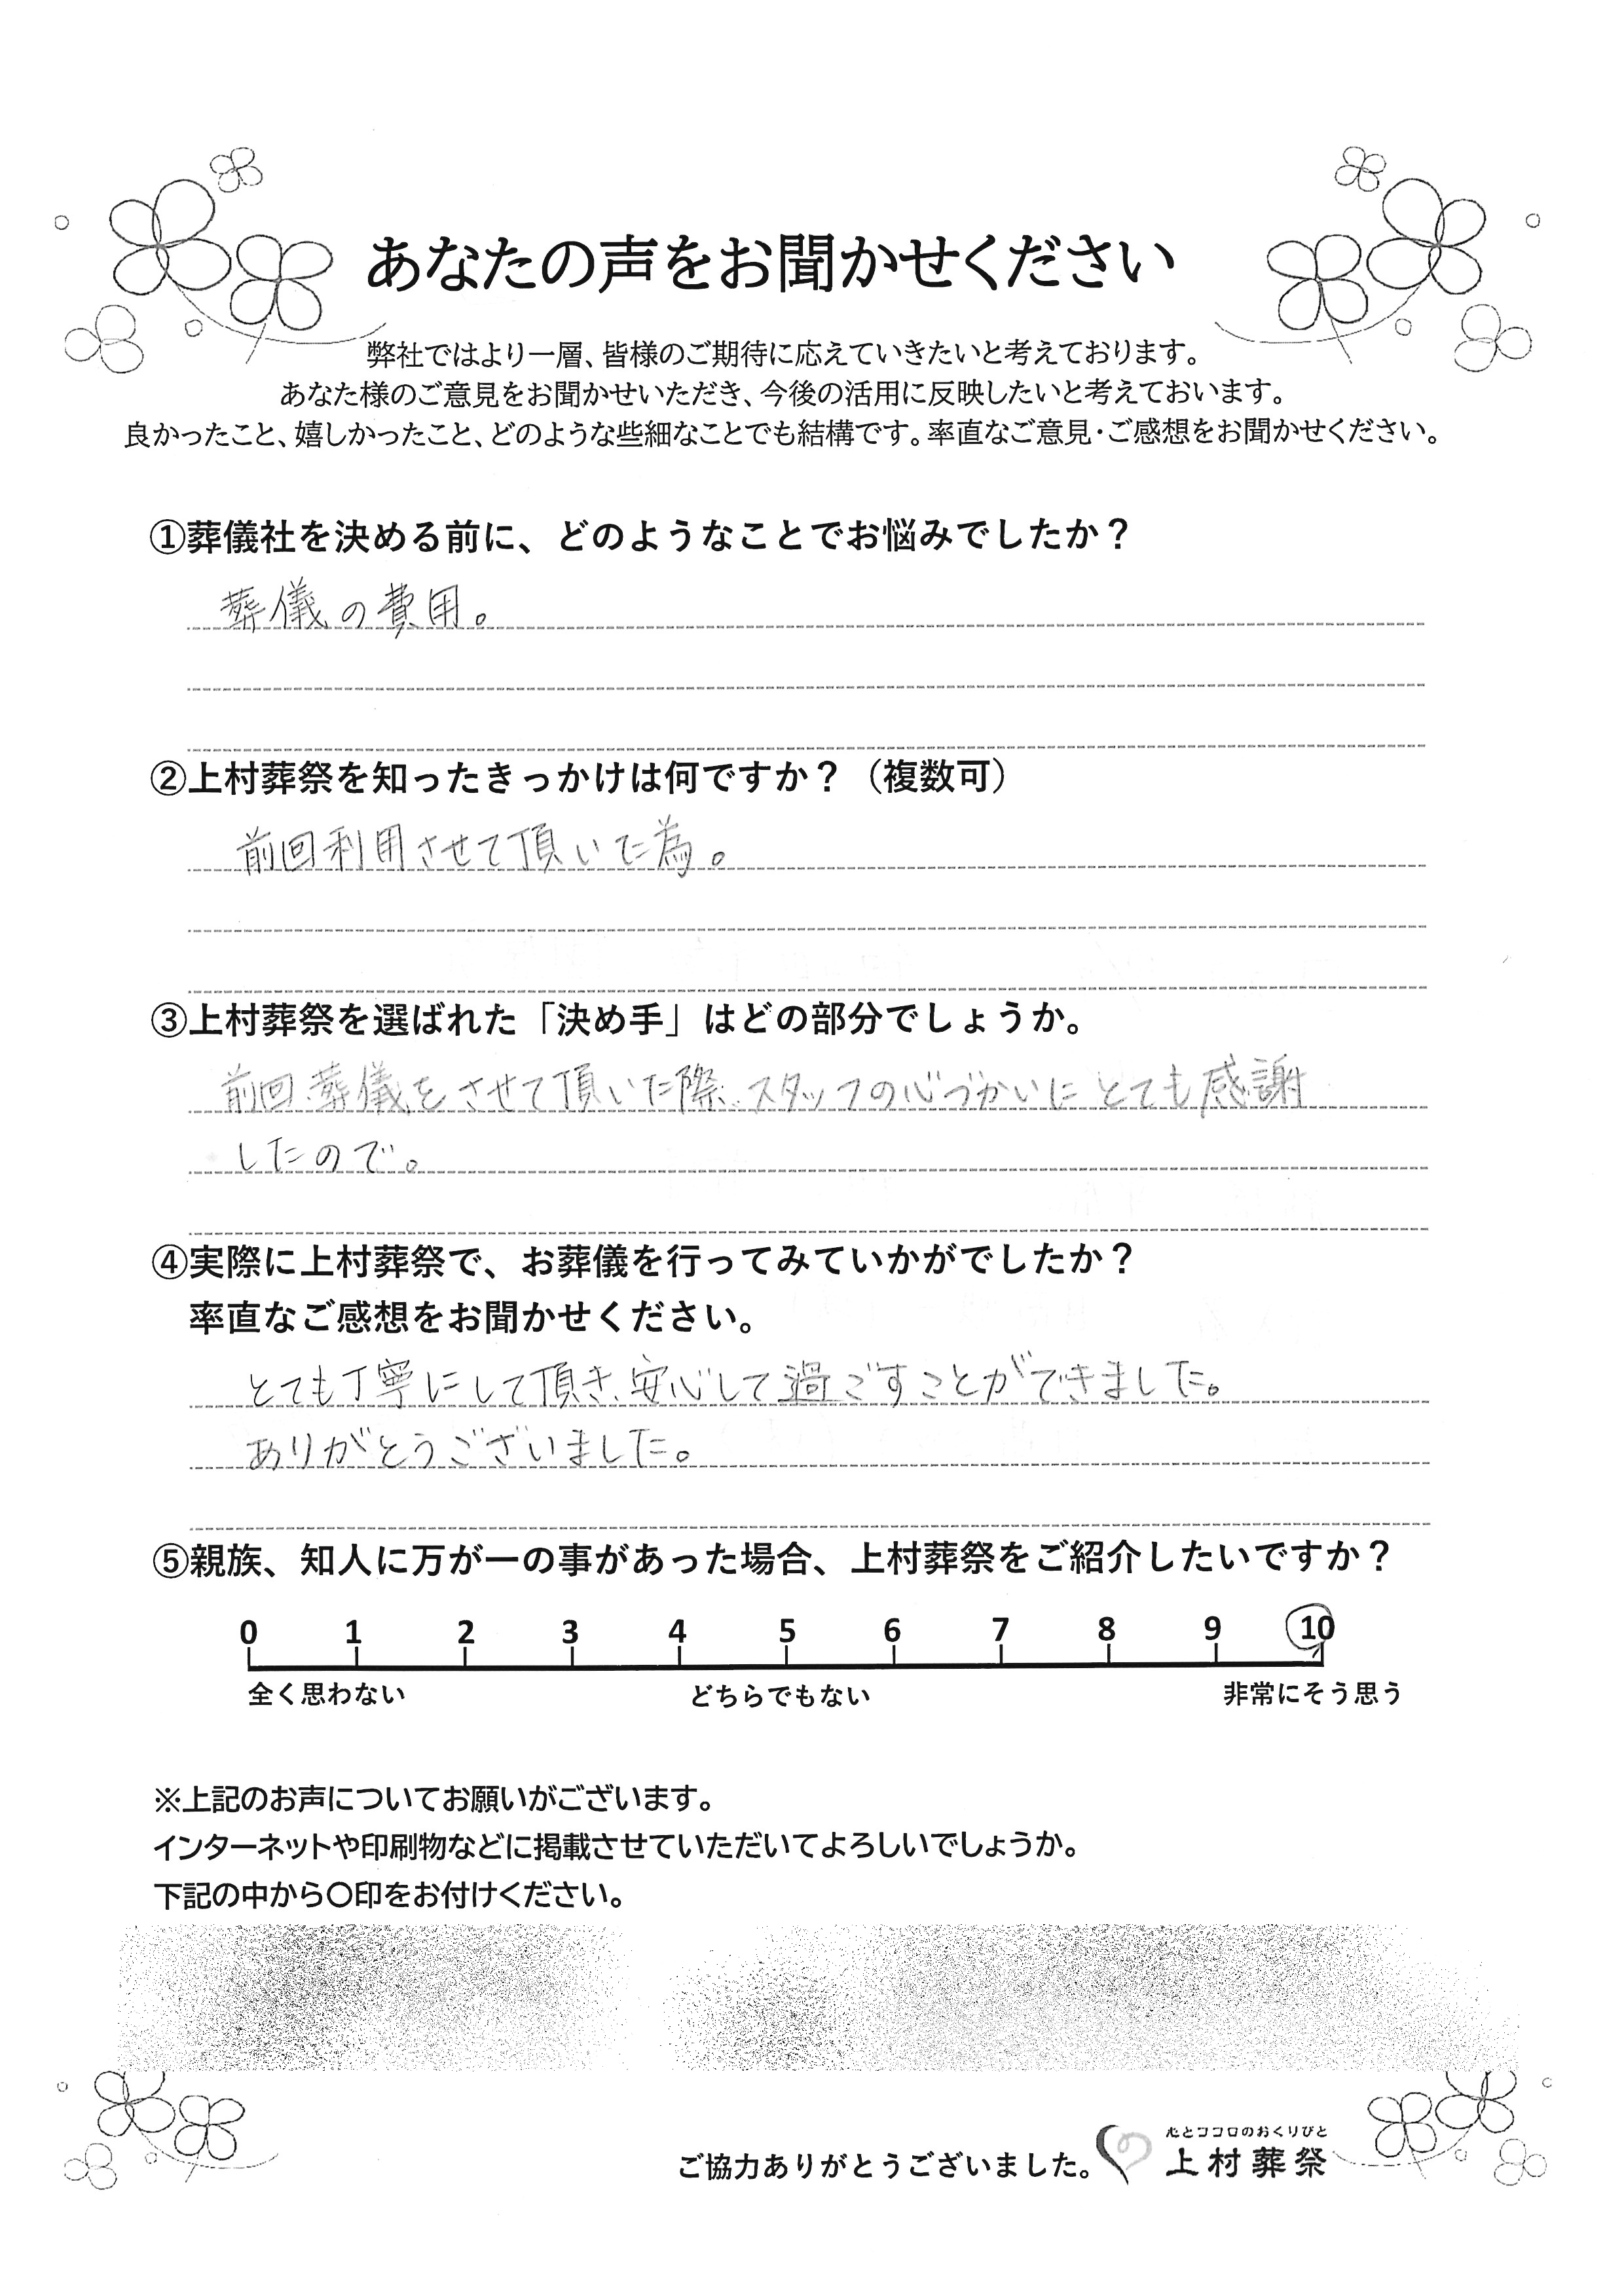 あなたの声をお聞かせください
弊社ではより一層、皆様のご期待に応えていきたいと考えております。
あなた様のご意見をお聞かせいただき、今後の活用に反映したいと考えておいます。
良かったこと、嬉しかったこと、どのような些細なことでも結構です。率直なご意見・ご感想をお聞かせください。
①葬儀社を決める前に、どのようなことでお悩みでしたか？
葬儀の費用。
②上村葬祭を知ったきっかけは何ですか？（複数可）
前回利用させて頂いた為。
③上村葬祭を選ばれた「決め手」はどの部分でしょうか。
前回葬儀をさせて頂いた際、スタッフの心づかいにとても感謝
したので。
④実際に上村葬祭で、お葬儀を行ってみていかがでしたか？
率直なご感想をお聞かせください。
とても丁寧にして頂き、安心して過ごすことができました。
ありがとうございました。
⑤親族、知人に万が一の事があった場合、上村葬祭をご紹介したいですか？
0 1 2 3 4 5 6 7 8 9 10
全く思わない どちらでもない 非常にそう思う
※上記のお声についてお願いがございます。
インターネットや印刷物などに掲載させていただいてよろしいでしょうか。
下記の中から〇印をお付けください。
心とココロのおくりびと
ご協力ありがとうございました。 上村葬祭